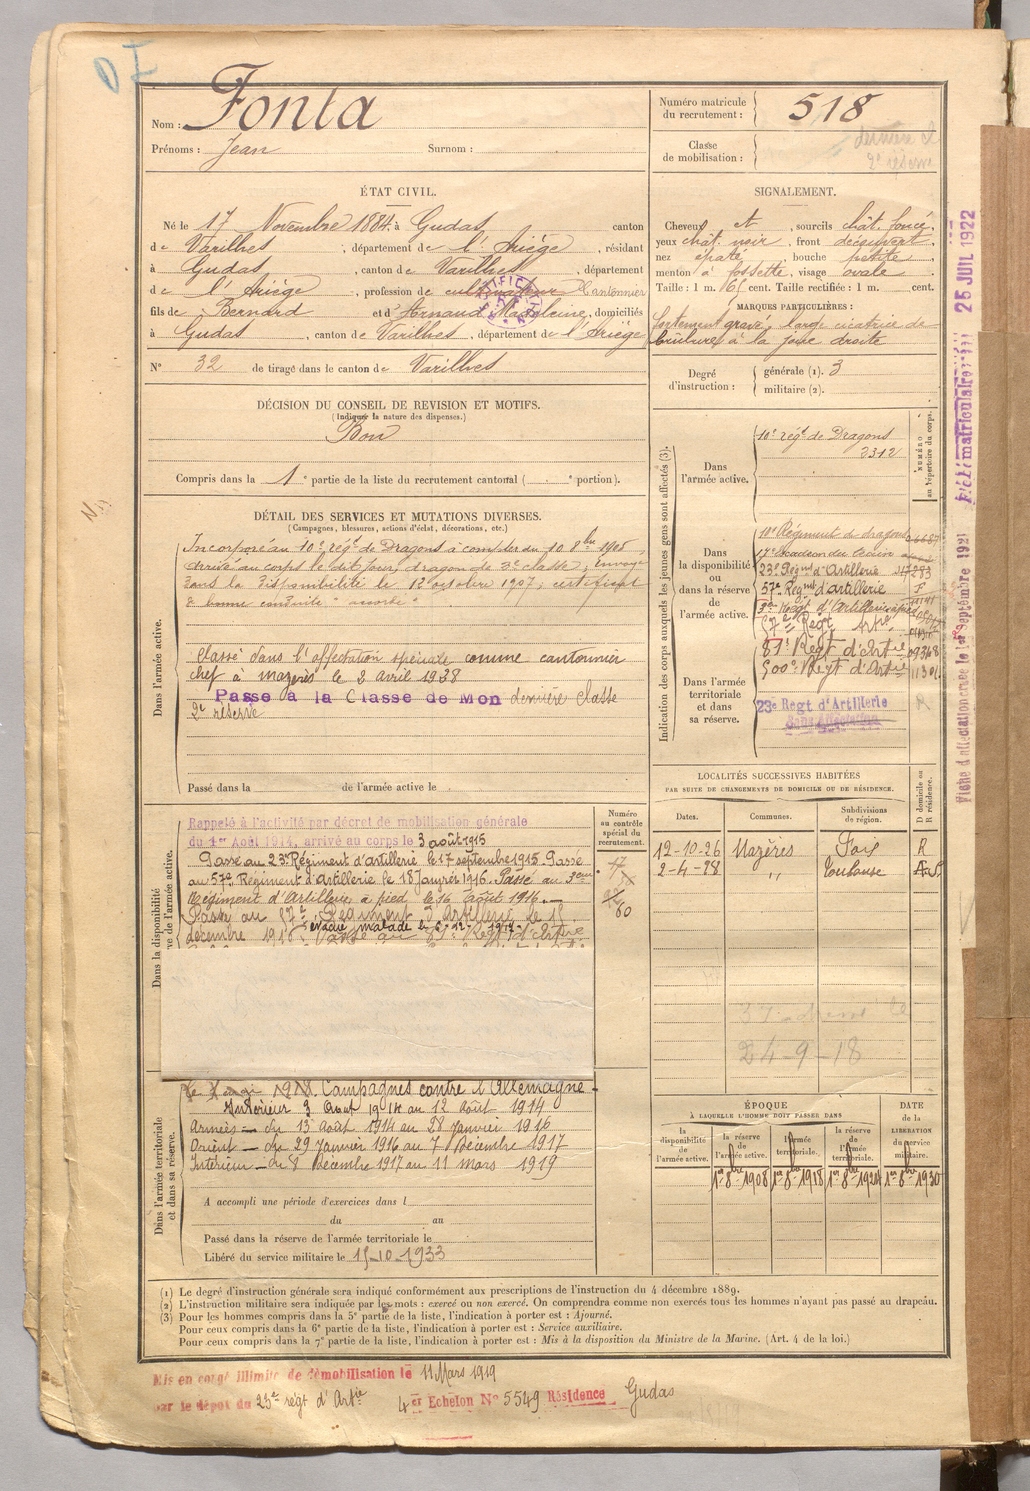 Nom : Fonta
Prénoms : Jean Surnom :
Numéro matricule du recrutement : 518
Classe de mobilisation : dernière cl
2e réserve
ÉTAT CIVIL.
Né le 17 Novembre 1884, à Gudas, canton
de Varilhes, département de l'Ariège, résidant
à Gudas, canton de Varilhes, département
de l'Ariège, profession de cultivateur Cantonnier
fils de Bernard et d'Arnaud Madeleine, domiciliés
à Gudas, canton de Varilhes, département de l'Ariège
N° 32 de tirage dans le canton de Varilhes
SIGNALEMENT.
Cheveux et, sourcils chât. foncé,
yeux chât. noir, front découvert,
nez épaté, bouche petite,
menton à fossette, visage ovale
Taille : 1 m. 61 cent. Taille rectifiée : 1 m. cent.
MARQUES PARTICULIÈRES :
fortement gravé, large cicatrice de
brûlures à la joue droite
Degré d'instruction : générale (1). 3
militaire (2).
DÉCISION DU CONSEIL DE REVISION ET MOTIFS.
(Indiquer la nature des dispenses.)
Bon
Compris dans la 1e partie de la liste du recrutement cantonal ( portion).
DÉTAIL DES SERVICES ET MUTATIONS DIVERSES.
(Campagnes, blessures, actions d'éclat, décorations, etc.)
Dans l'armée active.
Incorporé au 10e régt de Dragons à compter du 10 8bre 1905,
arrivé au corps le dit jour, dragon de 2e classe; envoyé
dans la disponibilité le 12 octobre 1907; certificat
de bonne conduite "accordé"
Classé dans l'affectation spéciale comme cantonnier
chef à Mazères le 2 avril 1938
Passé à la Classe de Mon dernière classe
2e réserve
Passé dans la de l'armée active le
Indication des corps auxquels les jeunes gens sont affectés (3).
NUMÉRO au répertoire du corps.
Dans l'armée active.
10e régt de Dragons
2312
Dans la disponibilité ou dans la réserve de l'armée active.
10e Régiment de dragons
17e Escadron du
23e Régnt d'Artillerie 283
57e Régnt d'artillerie
3e Régt d'Artillerie à pied
57e Régt Artie
81e Régt d'Artie
500e Régt d'Artie
Dans l'armée territoriale et dans sa réserve.
23e Regt d'Artillerie
Sans Affectation
LOCALITÉS SUCCESSIVES HABITÉES
PAR SUITE DE CHANGEMENTS DE DOMICILE OU DE RÉSIDENCE.
Dates. Communes. Subdivisions de région. D domicile ou R résidence.
12-10-26 Mazères Foix R
2-4-38 " Toulouse
24-9-18
Dans la disponibilité ve de l'armée active.
Numéro au contrôle spécial du recrutement.
Rappelé à l'activité par décret de mobilisation générale
du 1er Août 1914, arrivé au corps le 3 août 1915
Passé au 23e Régiment d'artillerie le 17 septembre 1915. Passé
au 57e Régiment d'Artillerie le 18 Janvier 1916. Passé au 3eme
Régiment d'Artillerie à pied le 26 Août 1916.
Passé au 57e Régiment d'Artillerie le 15
décembre 191 évacué malade le 6-12-1917. Passé au Régt d'Artie
60
Dans l'armée territoriale et dans sa réserve.
Campagnes contre l'Allemagne
Intérieur 3 Août 1914 au 12 Août 1914
Armées - du 13 Août 1914 au 28 Janvier 1916
Orient - du 29 Janvier 1916 au 7 Décembre 1917
Intérieur - du 8 Décembre 1917 au 11 mars 1919
A accompli une période d'exercices dans l
du au
Passé dans la réserve de l'armée territoriale le
Libéré du service militaire le 15-10-1933
ÉPOQUE
À LAQUELLE L'HOMME DOIT PASSER DANS
DATE DE LA LIBÉRATION du service militaire.
la disponibilité de l'armée active. la réserve de l'armée active. l'armée territoriale. la réserve de l'armée territoriale.
1er 8bre 1908 1er 8bre 1918 1er 8bre 1924 1er 8bre 1930
(1) Le degré d'instruction générale sera indiqué conformément aux prescriptions de l'instruction du 4 décembre 1889.
(2) L'instruction militaire sera indiquée par les mots : exercé ou non exercé. On comprendra comme non exercés tous les hommes n'ayant pas passé au drapeau.
(3) Pour les hommes compris dans la 5e partie de la liste, l'indication à porter est : Ajourné.
Pour ceux compris dans la 6e partie de la liste, l'indication à porter est : Service auxiliaire.
Pour ceux compris dans la 7e partie de la liste, l'indication à porter est : Mis à la disposition du Ministre de la Marine. (Art. 4 de la loi.)
Mis en congé illimité de démobilisation le 11 Mars 1919
par le dépôt du 23e régt d'Artie 4er Echelon N° 5549 Résidence Gudas
Fiche d'affectation créée le 1er Septembre 1921
25 JUIL 1922